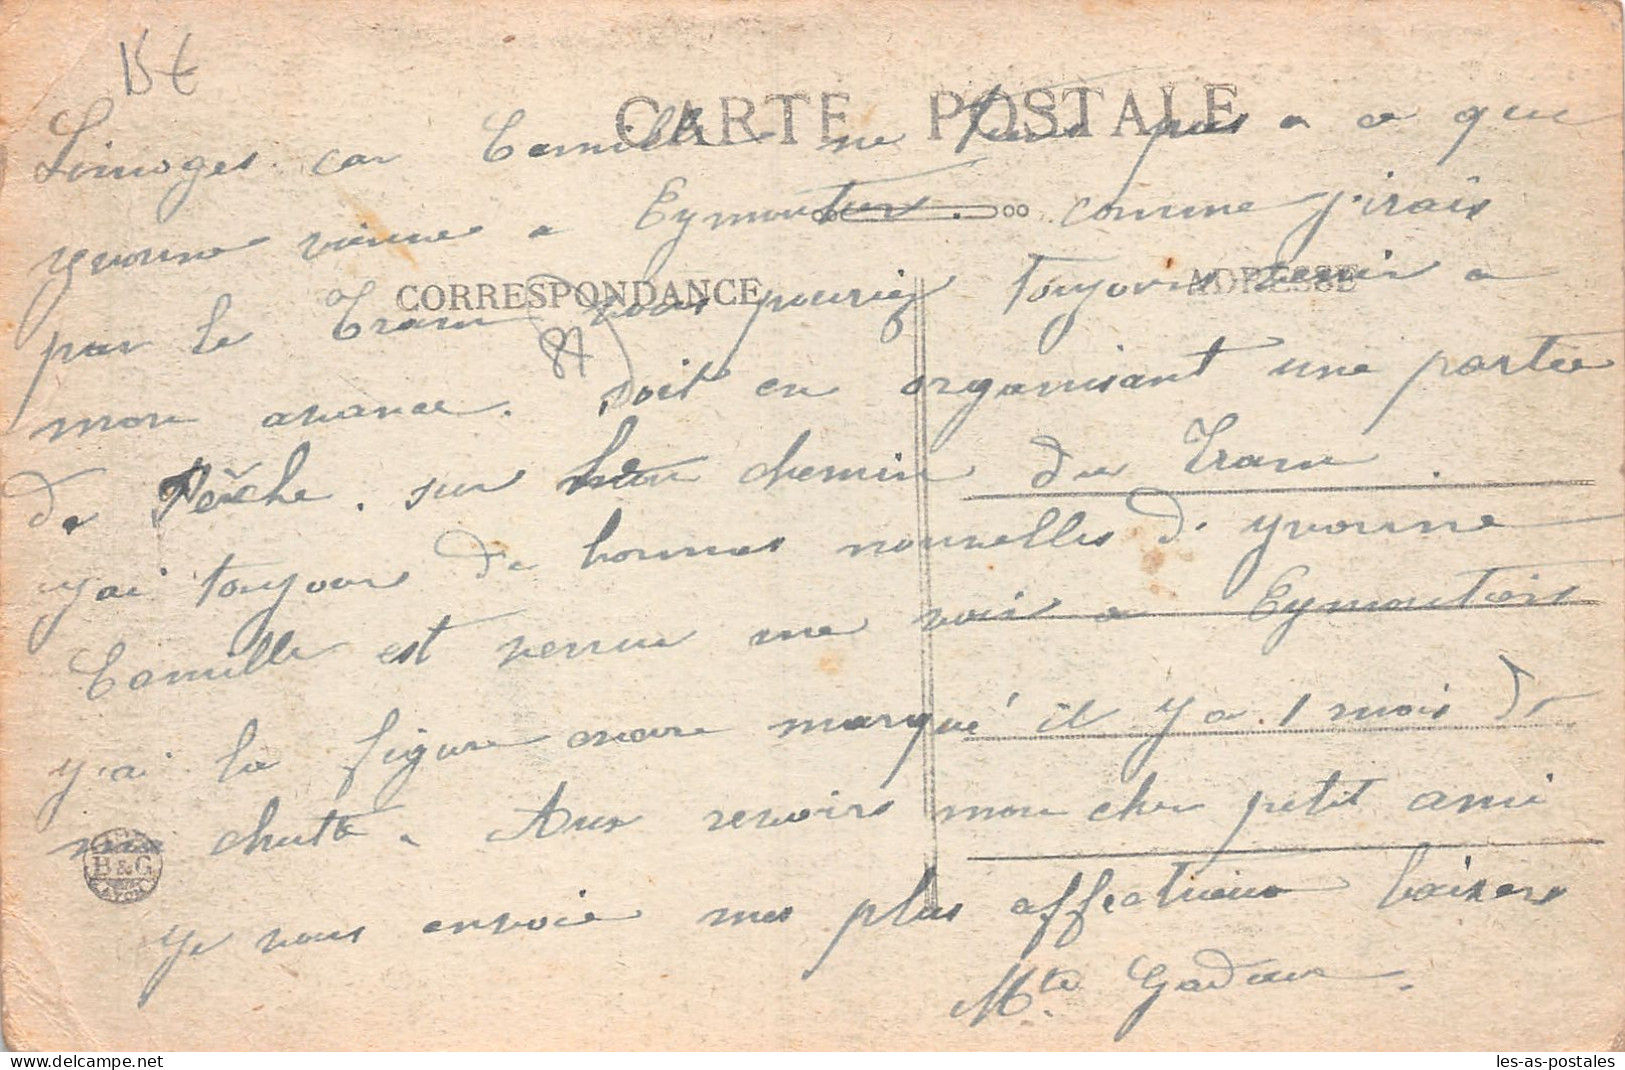 15 €
CARTE POSTALE
Limoges. car Camille ne tiens pas a ce que
yvonne vienne a Eymoutiers. comme j'irais
CORRESPONDANCE
ADRESSE
par le Tram vous pouriez toujours venir a
87
mon avance. soit en organisant une partie
de Pêche. sur le chemin du Tram.
y'ai toujours de bonnes nouvelles d'yvonne
Camille est venue me voir a Eymoutiers
y'ai la figure encore marqué il y a 1 mois de
ma chute. Aux revoirs mon cher petit ami
B & G
ye vous envoie mes plus affectueux baisers
Mte
delcampe.net
les-as-postales